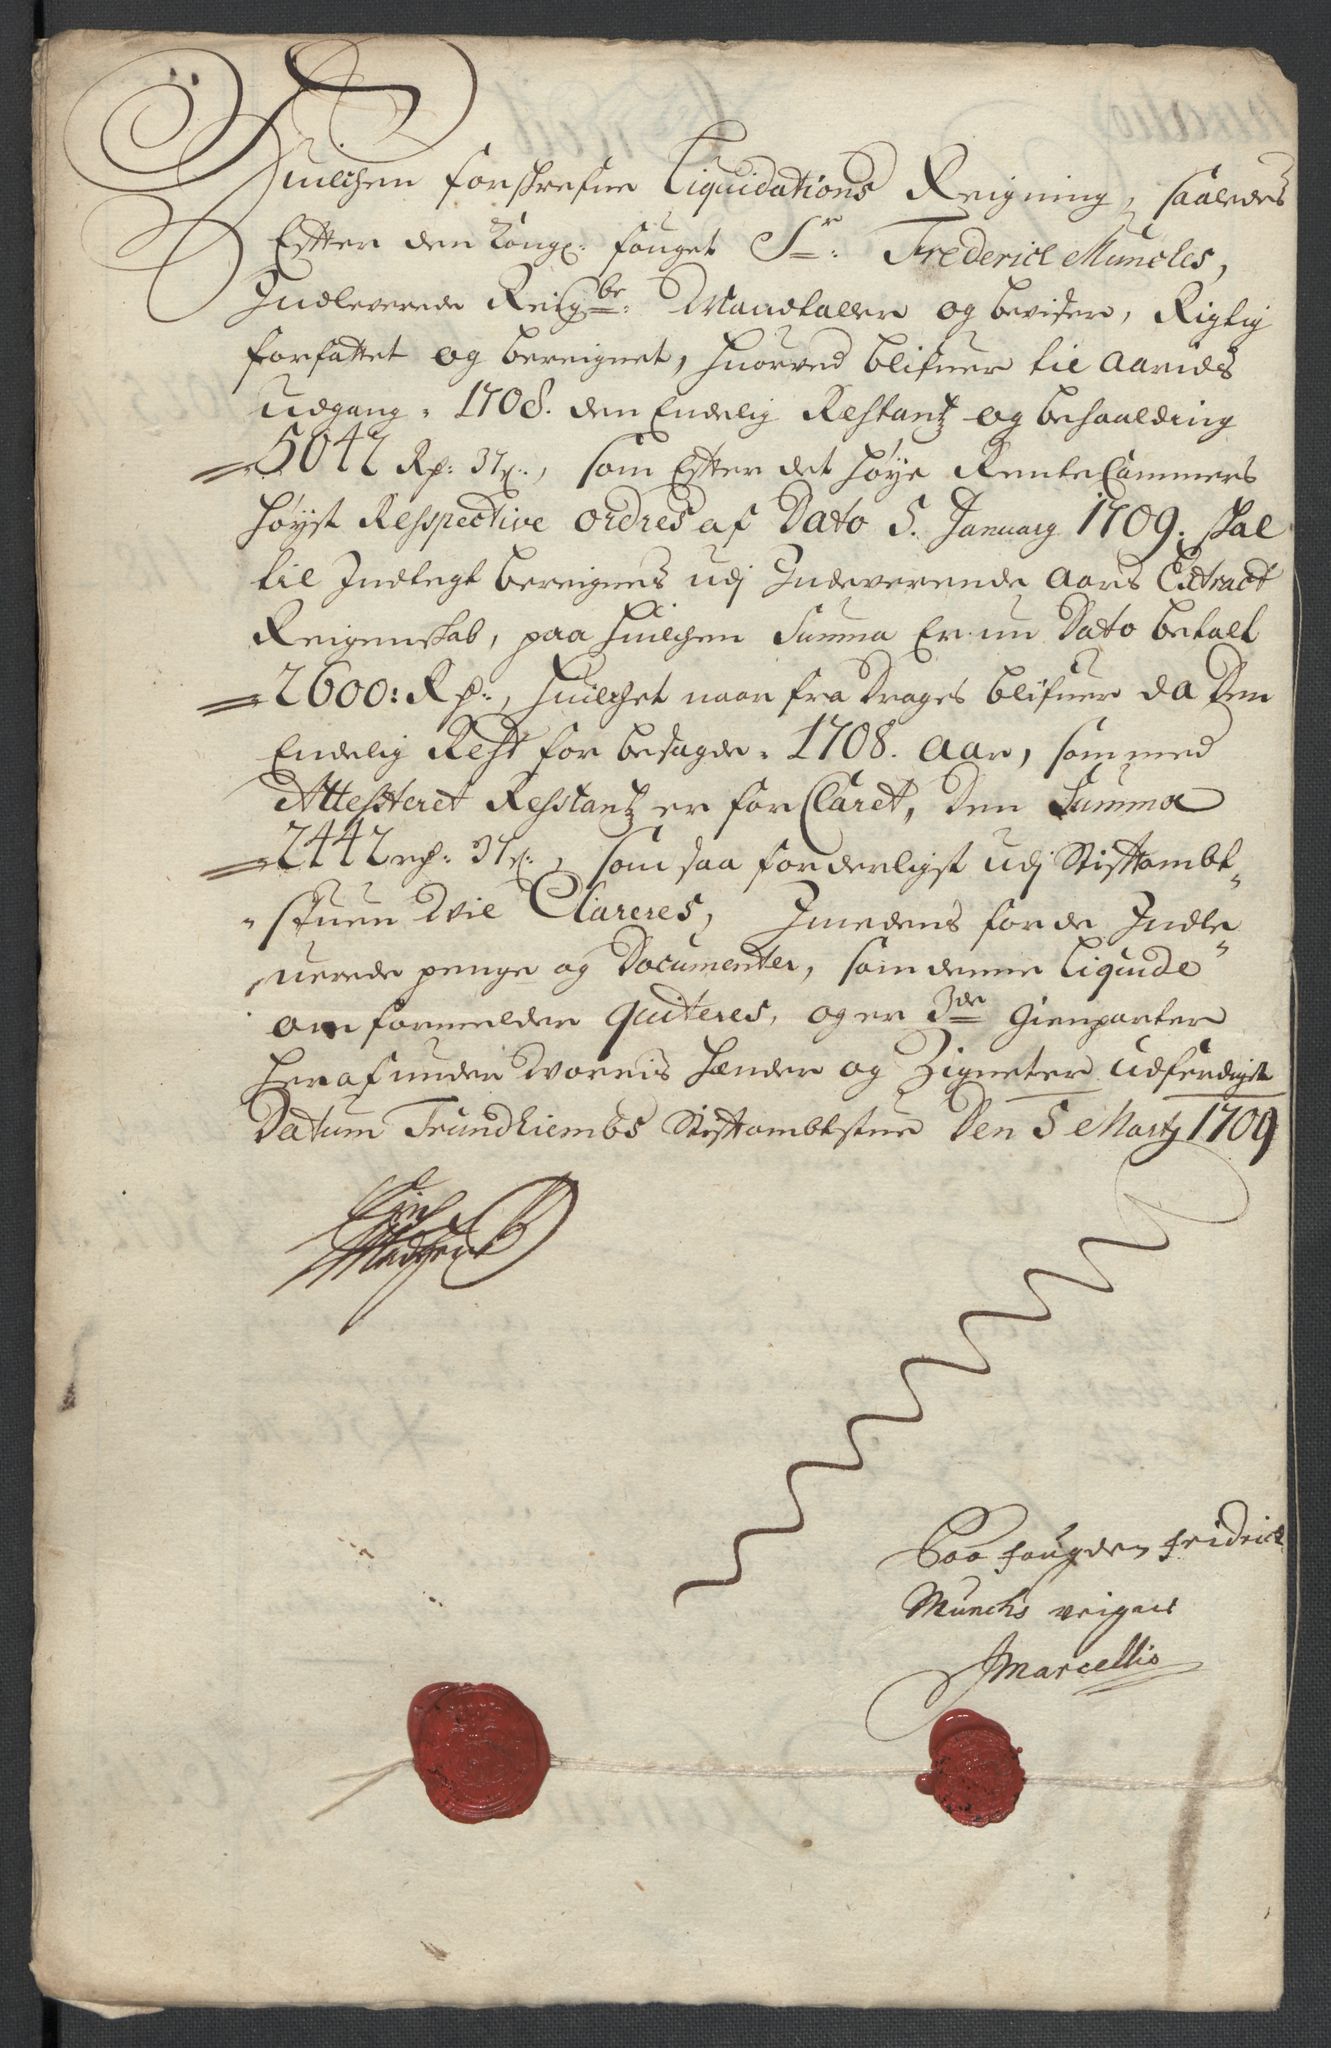 Huilchen forskrefne Liquidations Reigning, saaledes
Effter den Kongl: fouget Sr: Frederick Munckes,
Indleverede Reigbr: Mandtaller og beviser, Rigtig
forfattet og bereignet, huorved blifuer til Aarids
Udgang 1708. den Endelig Restantz og behaalding
5042 Rp: 3 , som Effter det høye RenteCammers
høyst Respective ordres af Dato 5. January 1709. skal
til Indtegt bereignes udj Indeverende Aars Extract
Reigenskab, paa huilchen Summa Er nu Dato betalt
2600: Rp:, huilchet naar fra Drages blifuer da Den
Endelig Rest for besagde 1708. Aar, som med
Attesteret Restantz er for Claret, Den Summa
2442 rp: 3 , som saa forderligst udj Stiftambt-
stuen Wil Clareres, Imedens for de Indle-
uerede penge og Documenter, som denne Liquide
om formelder quiteres, og er 3de Gienparter
heraf under Worris hænder og Zigneter udferdiget
Datum Trundhiembs Stiftambtstue Den 5 Martz 1709
Madssen
Paa fougden Fridrick
Munchs veigne
JMarcellis